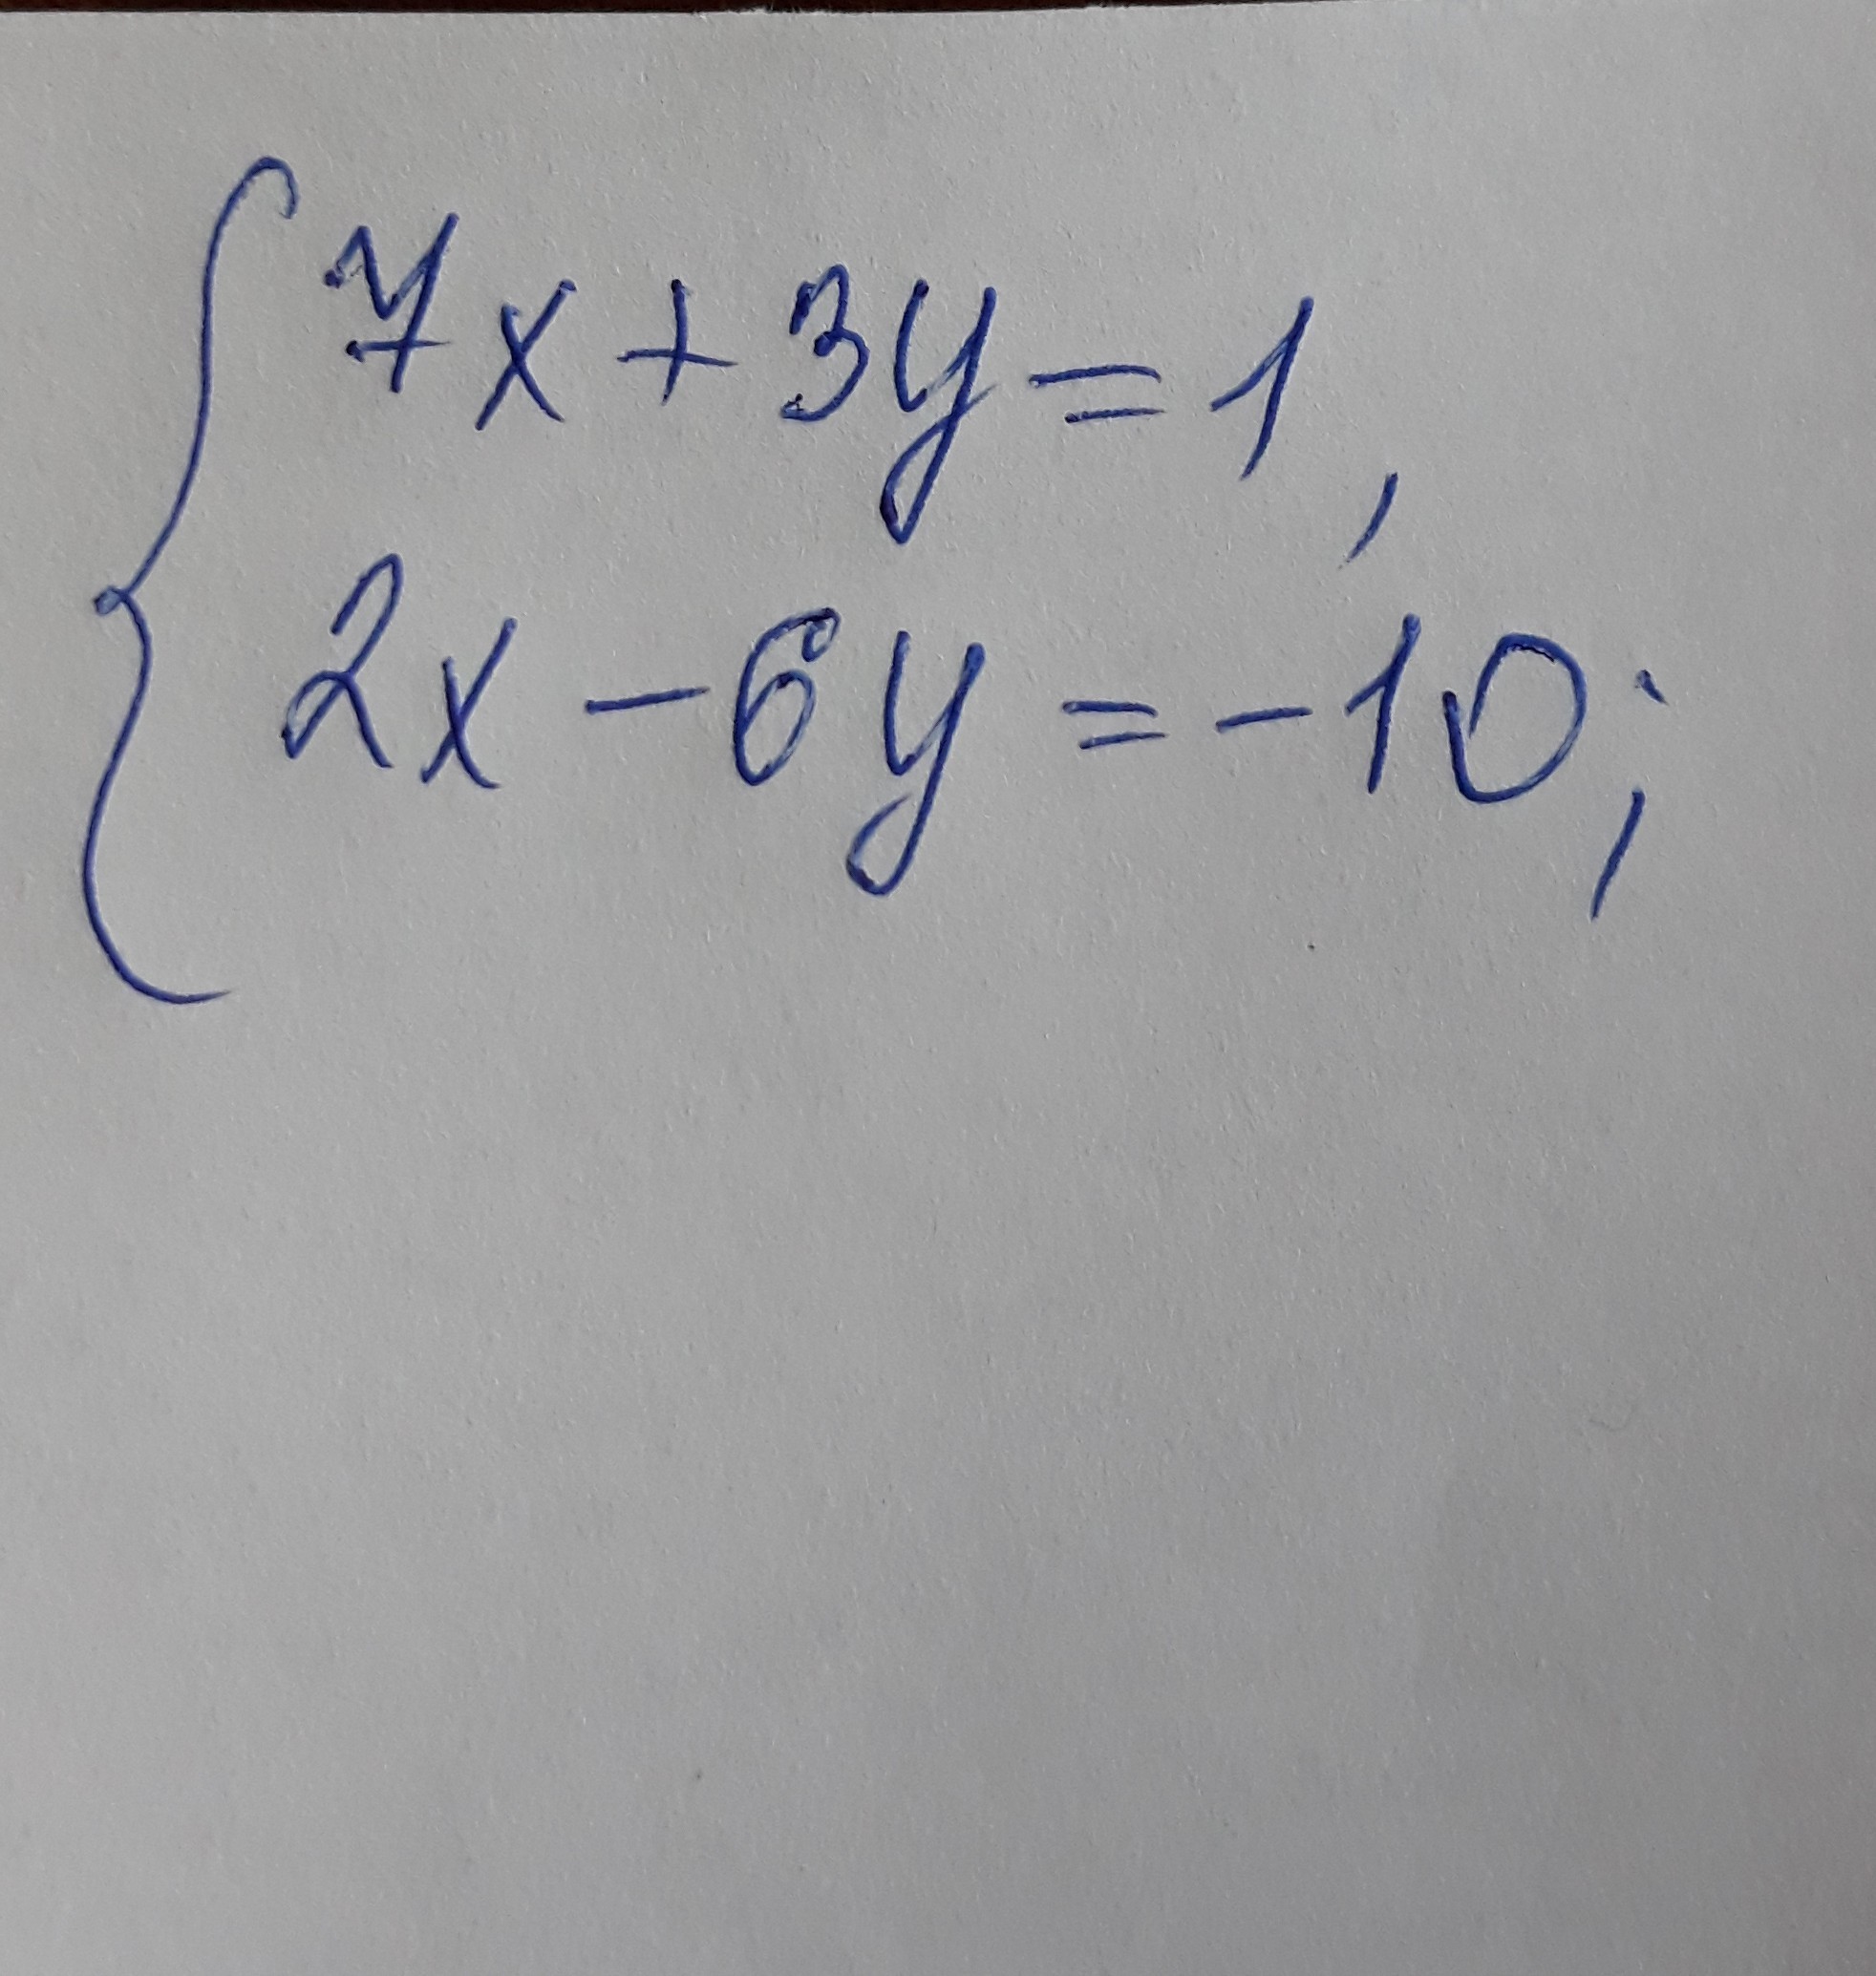 7x + 3y = 1,
2x - 6y = -10;